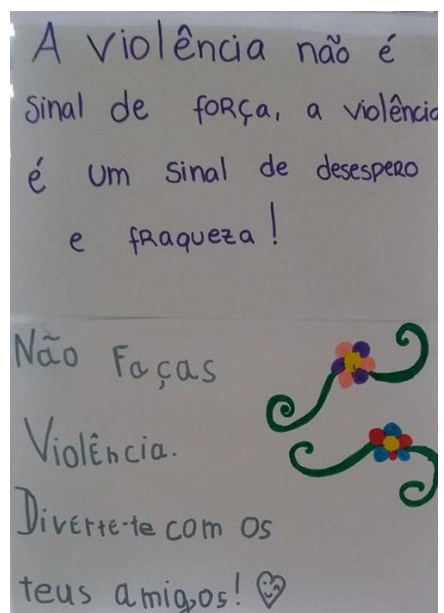 A violência não é
sinal de força, a violência
é um sinal de desespero
e fraqueza!
Não Faças
Violência.
Diverte-te com os
teus amigos!